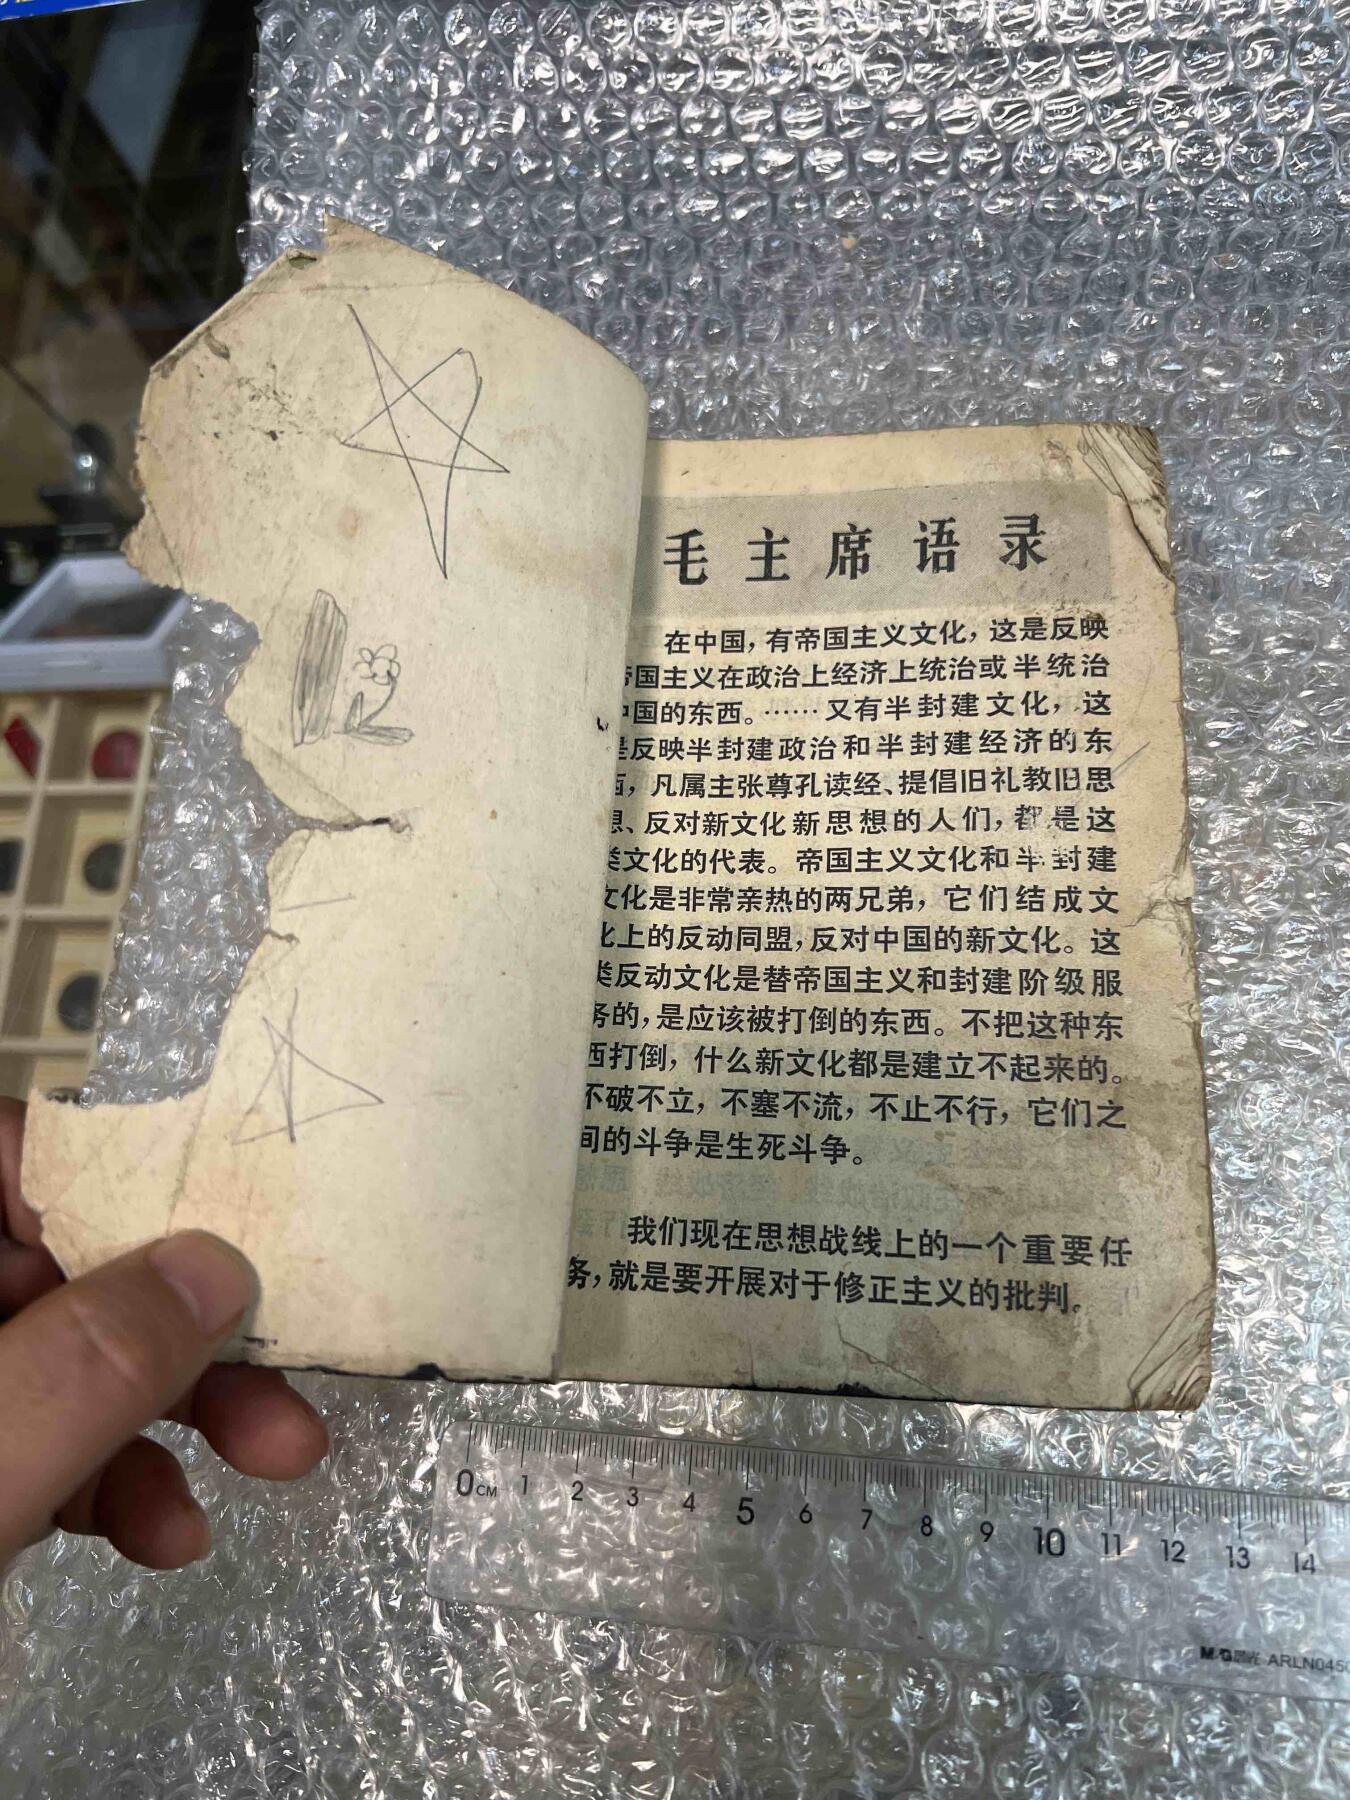 毛主席语录
在中国，有帝国主义文化，这是反映
帝国主义在政治上经济上统治或半统治
中国的东西。……又有半封建文化，这
是反映半封建政治和半封建经济的东
西，凡属主张尊孔读经、提倡旧礼教旧思
想、反对新文化新思想的人们，都是这
类文化的代表。帝国主义文化和半封建
文化是非常亲热的两兄弟，它们结成文
化上的反动同盟，反对中国的新文化。这
类反动文化是替帝国主义和封建阶级服
务的，是应该被打倒的东西。不把这种东
西打倒，什么新文化都是建立不起来的。
不破不立，不塞不流，不止不行，它们之
间的斗争是生死斗争。
我们现在思想战线上的一个重要任
务，就是要开展对于修正主义的批判。
0CM 1 2 3 4 5 6 7 8 9 10 11 12 13 14
M&G 晨光 ARLN045